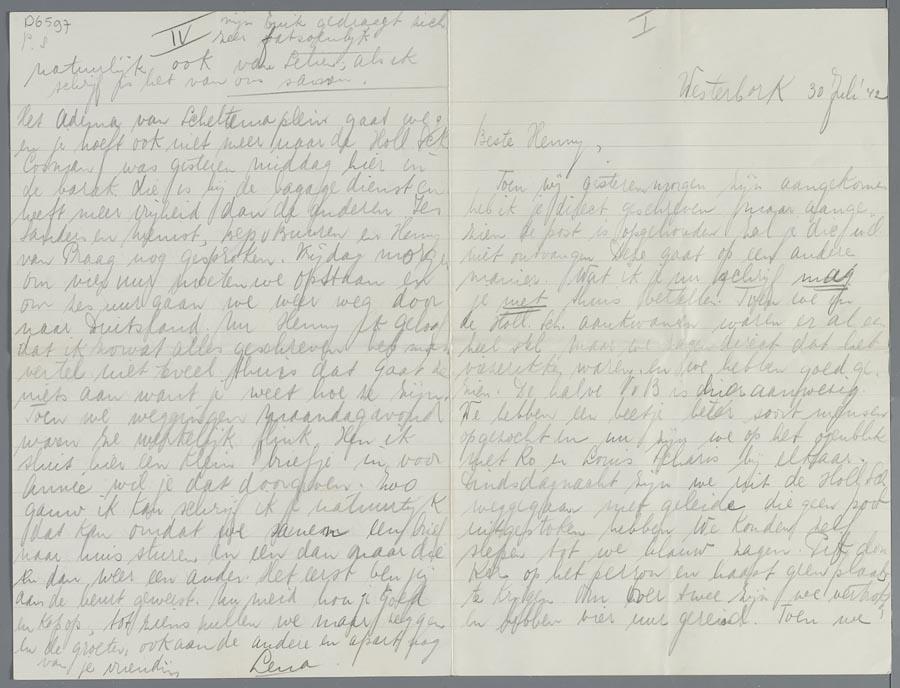 I
Westerbork 30 Juli '42
Beste Henny,
Toen wij gisterenmorgen zijn aangekomen
heb ik je direct geschreven maar aange-
zien de post is opgehouden zal je die wel
niet ontvangen. Deze gaat op een andere
manier. Wat ik je nu schrijf mag
je niet thuis vertellen. Toen we in
de Holl. Sch. aankwamen waren er al een
heel stel, maar we zagen direct dat het
waren en we hebben goed ge-
zien. De halve is hier aanwezig.
We hebben een beetje beter soort mensen
opgezocht en nu zijn we op het ogenblik
met Ro en Louis bij elkaar.
Dinsdagnacht zijn we uit de Holl. Sch.
weggegaan met geleide die geen poot
uitgestoken hebben. We konden zelf
slepen tot we blauw zagen.
op het perron en haast geen plaats
te krijgen. Om over twee zijn we vertrokken
en hebben vier uur gereisd. Toen we
D6597
P.S
IV
mijn gedraagt zich
zeer fatsoenlijk
natuurlijk ook van als ik
schrijf is het van ons samen.
Het Adema van Scheltemaplein gaat weg
en je hoeft ook niet meer naar de Holl Sch.
was gisteren middag hier in
de barak die is bij de bagagedienst en
heeft meer vrijheid dan de anderen.
Sanders en en Henny
van Praag nog gesproken. Vrijdag morgen
om vier uur moeten we opstaan en
om zes uur gaan we weer weg door
naar Duitsland. Nu Henny ik geloof
dat ik zowat alles geschreven heb maar
vertel niet teveel thuis dat gaat ze
niets aan want je weet hoe ze zijn.
Toen we weggingen Maandagavond
waren ze werkelijk flink. Hen ik
sluit hier een klein briefje in voor
Annie wil je dat doorgeven. Zoo
gauw ik kan schrijf ik je natuurlijk
dat kan omdat we samen een brief
naar huis sturen en een dan naar die
en dan weer een ander. Het eerst ben jij
aan de beurt geweest. Nu meid hou je goed
en kop op, tot ziens zullen we maar zeggen
en de groeten, ook aan de andere en apart nog
van je vriendin
Lena.